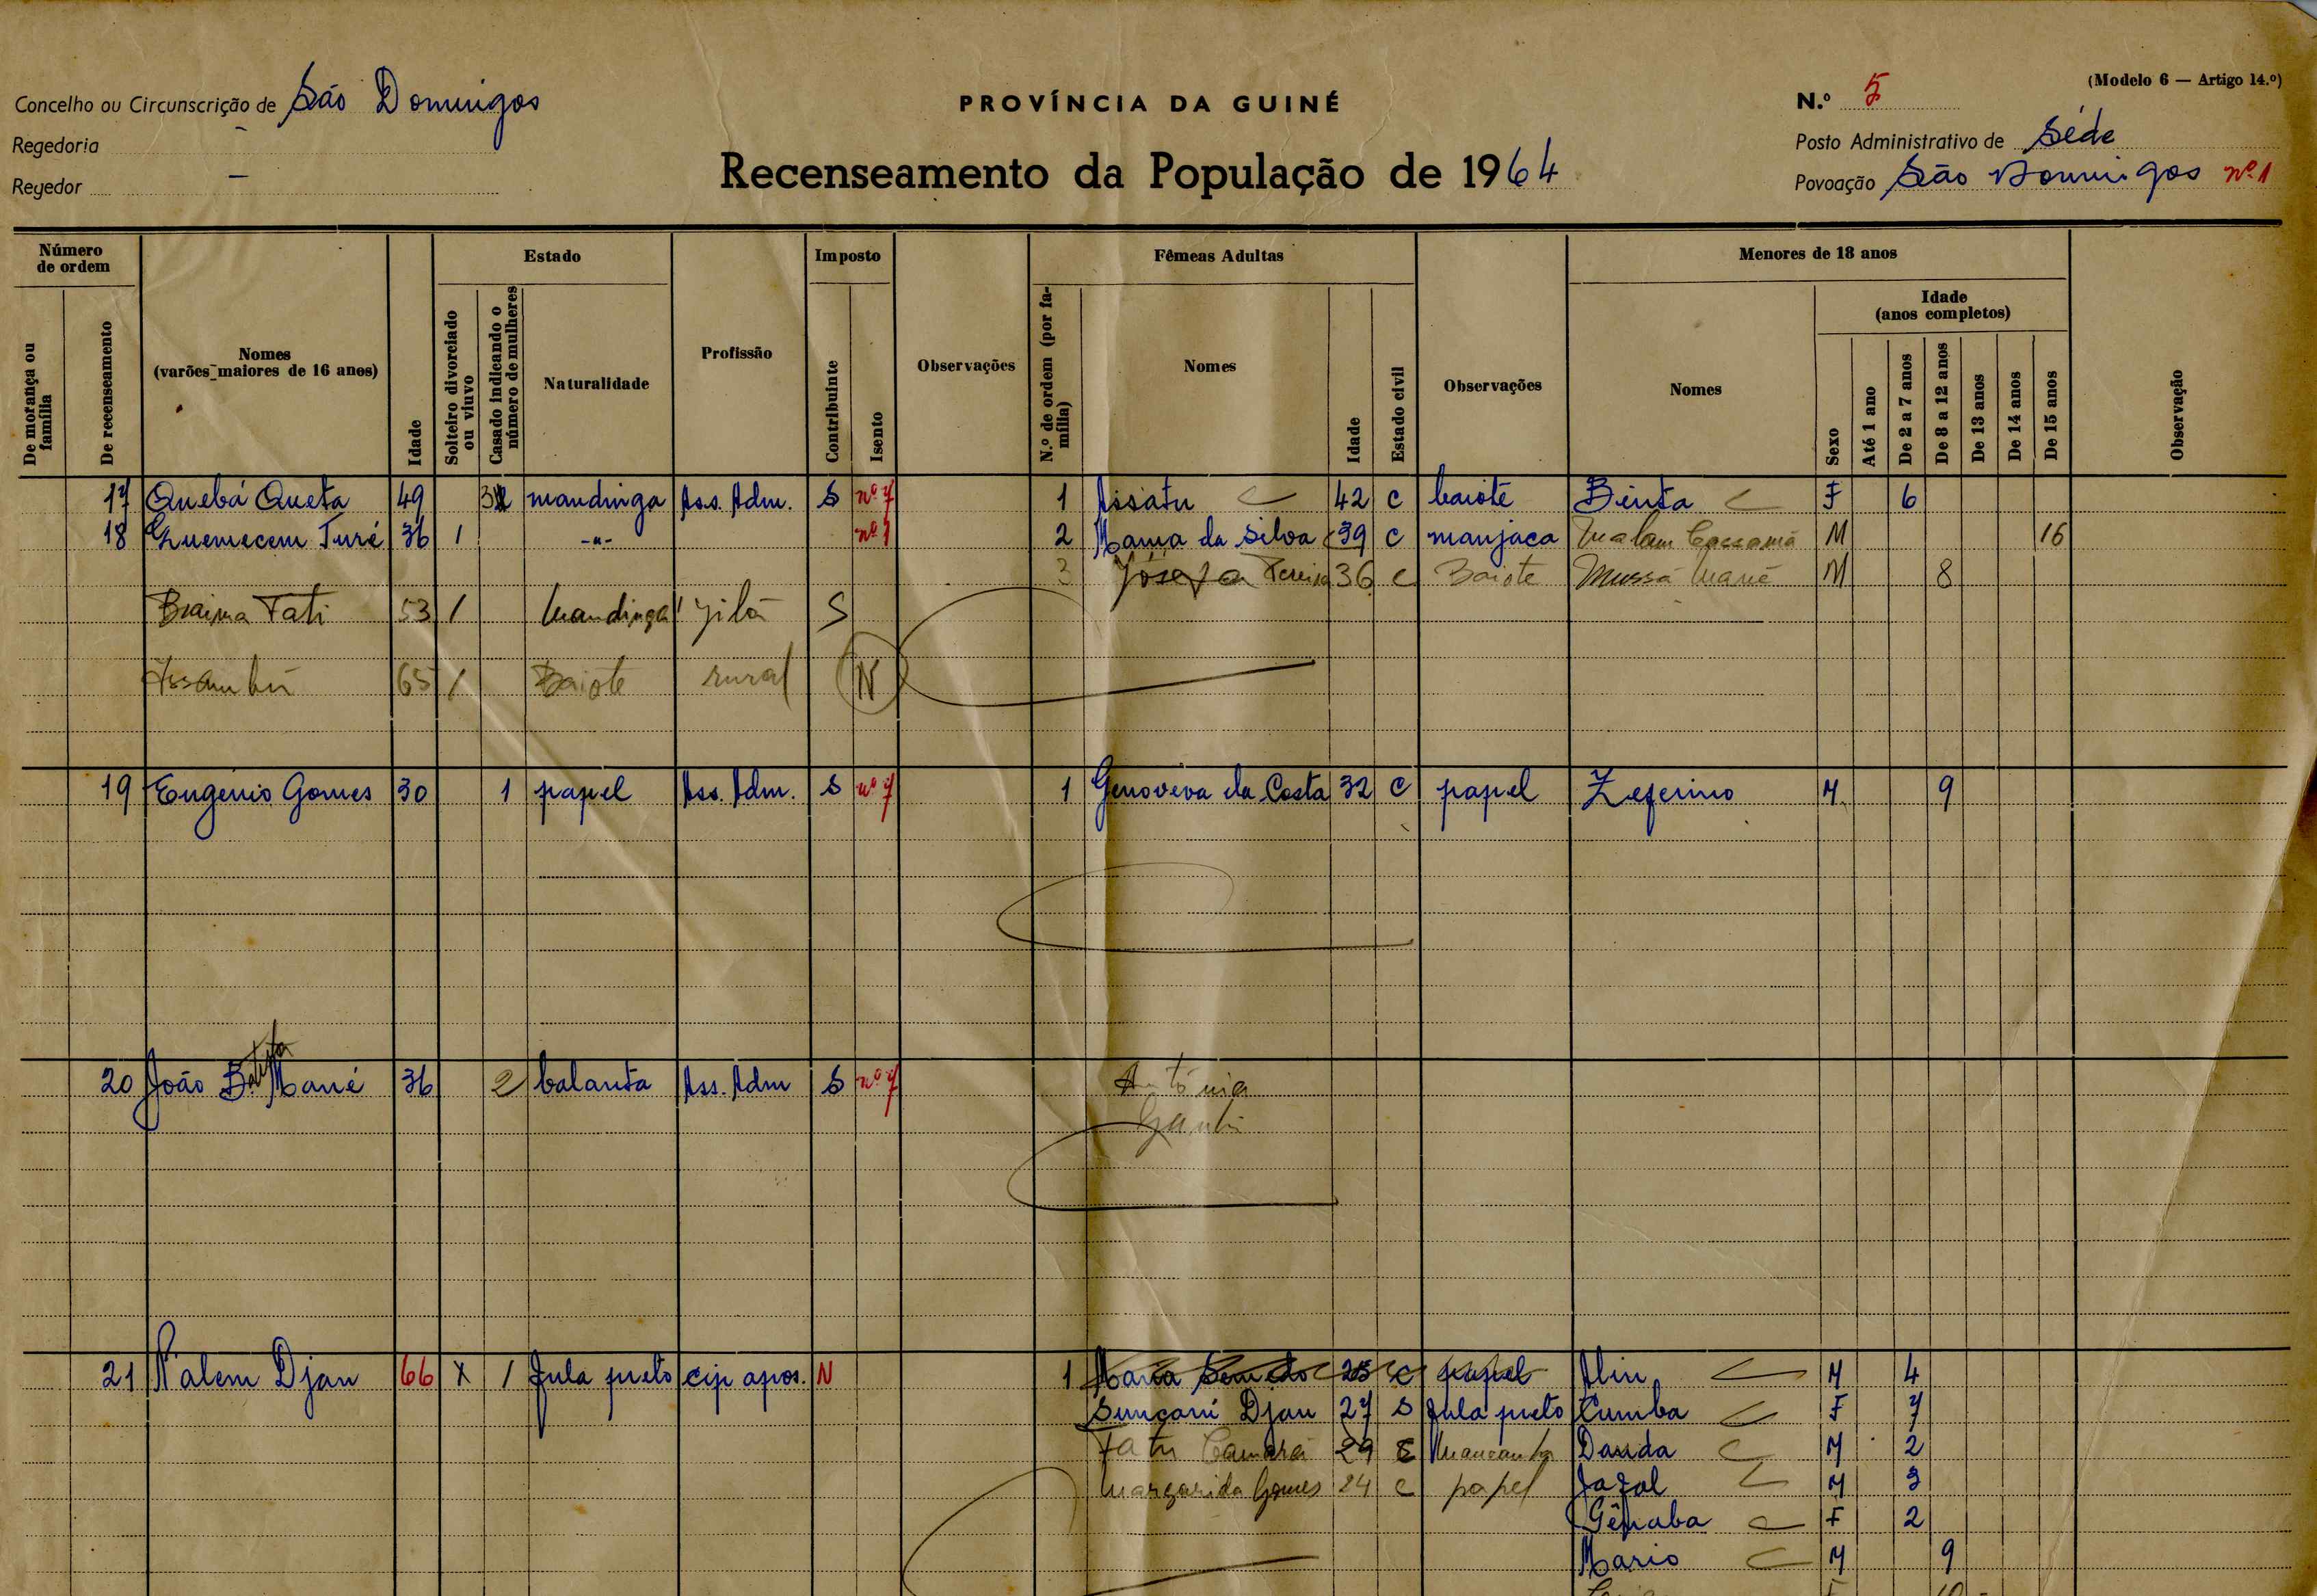 Concelho ou Circunscrição de São Domingos
Regedoria -
Regedor -
PROVÍNCIA DA GUINÉ
Recenseamento da População de 1964
(Modelo 6 — Artigo 14.º)
N.º 5
Posto Administrativo de Séde
Povoação São Domingos nº 1
Número de ordem
De morança ou família
De recenseamento
Nomes
(varões maiores de 16 anos)
Idade
Estado
Solteiro divorciado ou viuvo
Casado indicando o número de mulheres
Naturalidade
Profissão
Imposto
Contribuinte
Isento
Observações
Fêmeas Adultas
N.º de ordem (por família)
Nomes
Idade
Estado civil
Observações
Menores de 18 anos
Nomes
Sexo
Idade
(anos completos)
Até 1 ano
De 2 a 7 anos
De 8 a 12 anos
De 13 anos
De 14 anos
De 15 anos
Observação
17 Quebá Queta 49 3 mandinga Ass. Adm. S nº 7 1 Assatu 42 c baiote Binta F 6
18 Quemecem Turé 36 1 -"- nº 1 2 Maria da Silva 39 c manjaca Malam Cassamá M 16
3 Josefa Pereira 36 c Baiote Mussá Mané M 8
Braima Fati 53 / Mandinga Gilá S
65 / Baiote rural N
19 Eugénio Gomes 30 1 papel Ass. Adm. S nº 7 1 Genoveva da Costa 32 c papel Zeferino M 9
20 João Batista Mané 36 2 balanta Ass. Adm S nº 7 Antónia
21 N'alem Djau 66 X 1 fula preto cip apos. N 1 Maria Semedo 25 c papel Aliu M 4
Sunçani Djau 27 S fula preto Cumba F 7
Fatu Camará 29 c Mancanha Dauda M 2
Margarida Gomes 24 c papel M 3
Gênaba F 2
Mario M 9